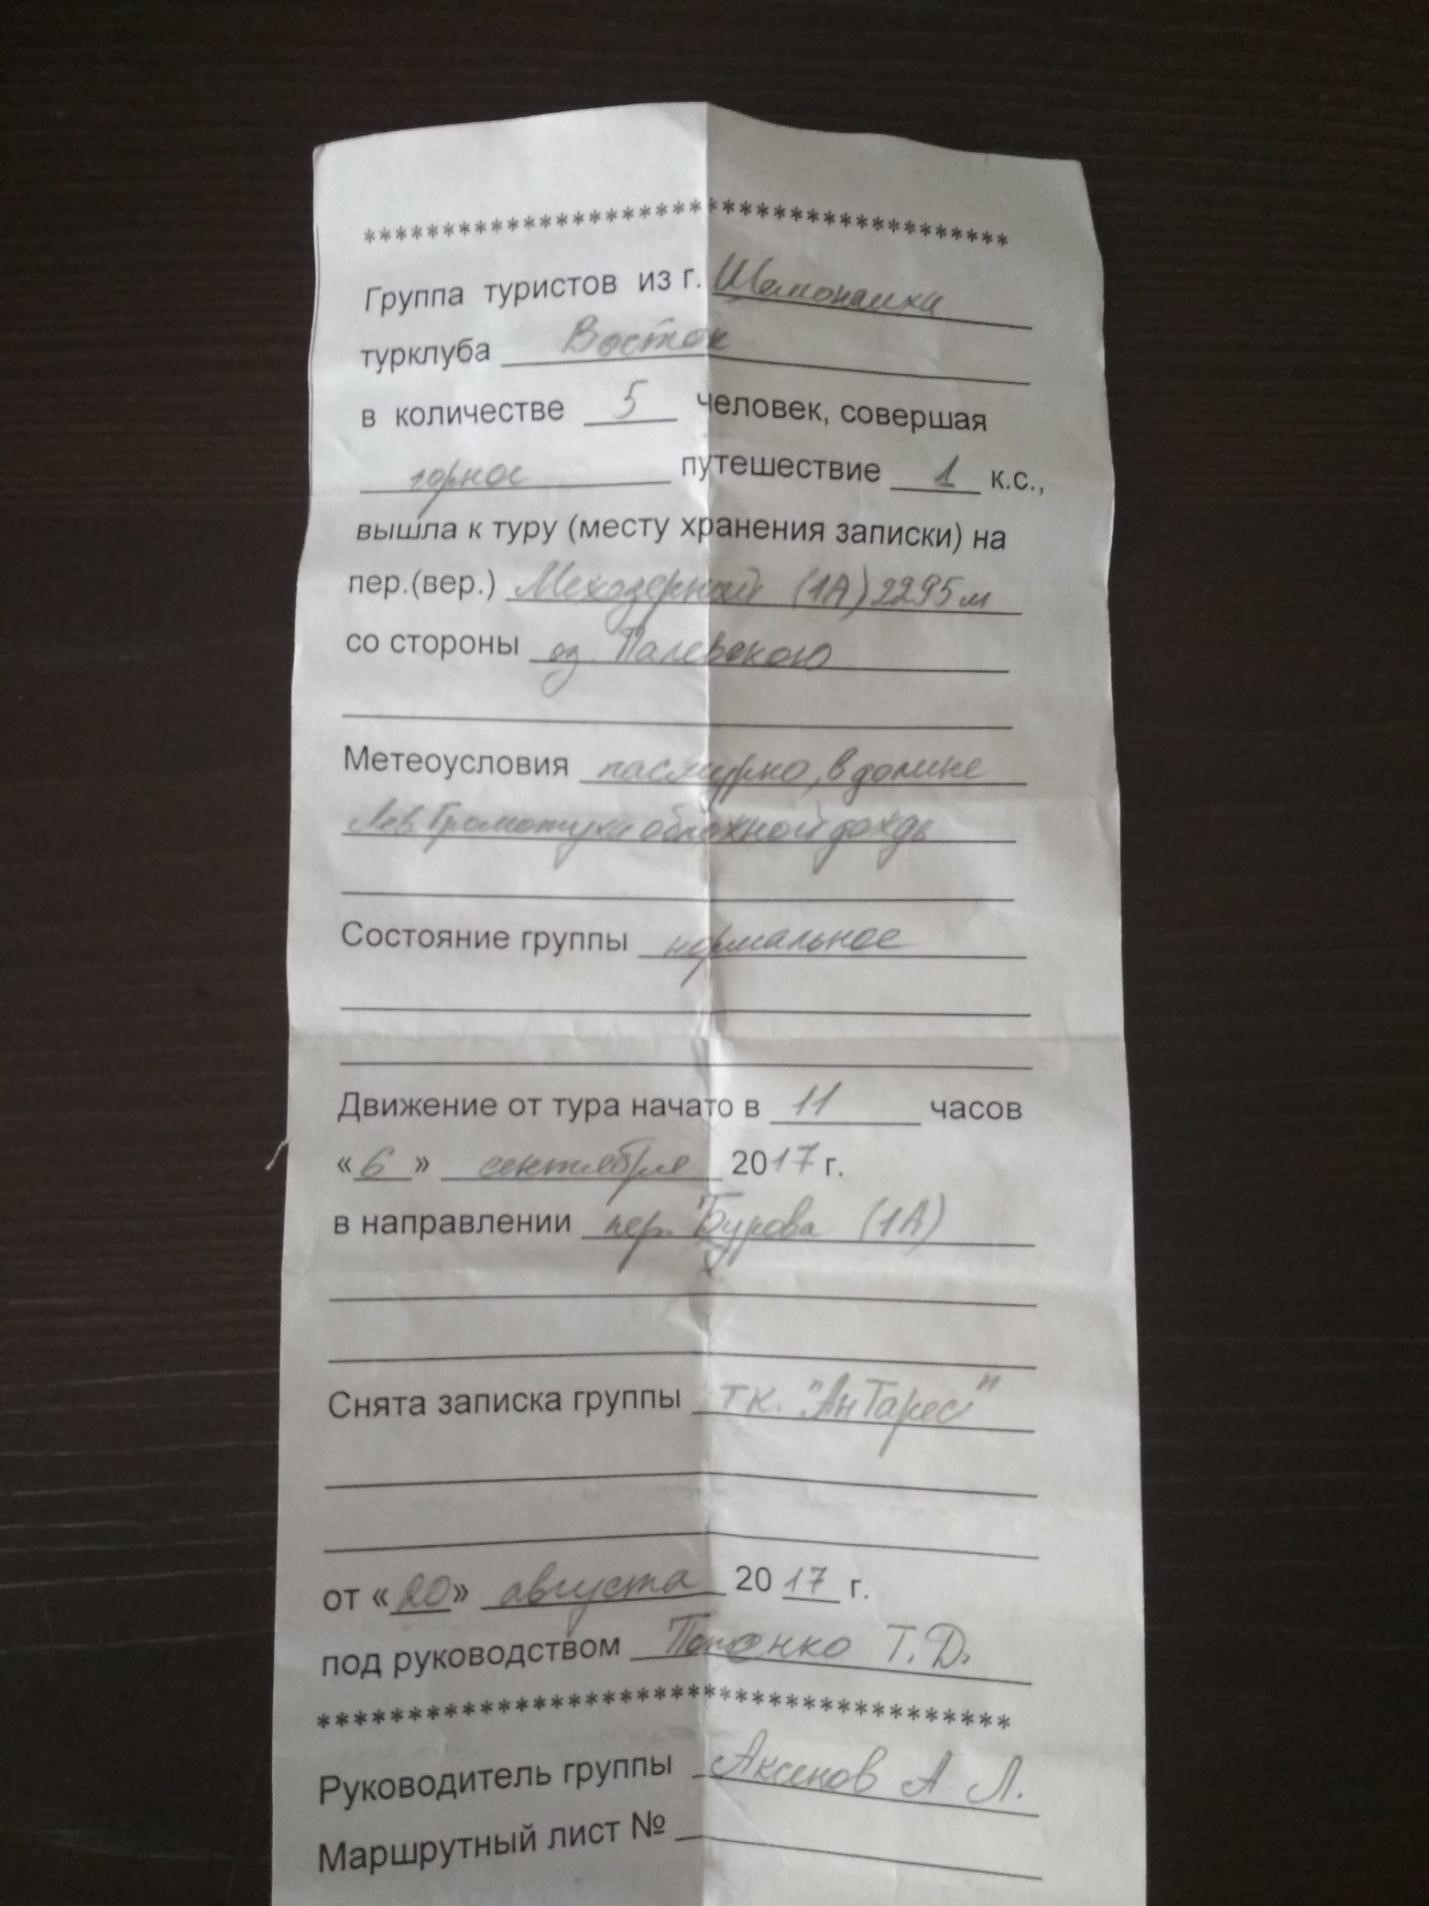 ************************************
Группа туристов из г. Шемонаихи
турклуба Восток
в количестве 5 человек, совершая
горное путешествие 1 к.с.,
вышла к туру (месту хранения записки) на
пер.(вер.) Межозерный (1А) 2295 м
со стороны оз. Палевского
Метеоусловия пасмурно, в долине
Лев. Громотухи обложной дождь
Состояние группы нормальное
Движение от тура начато в 11 часов
«6» сентября 2017 г.
в направлении пер. Бурова (1А)
Снята записка группы т.к. "Антарес"
от «20» августа 2017 г.
под руководством Т.Д.
************************************
Руководитель группы Аксенов А.Л.
Маршрутный лист №